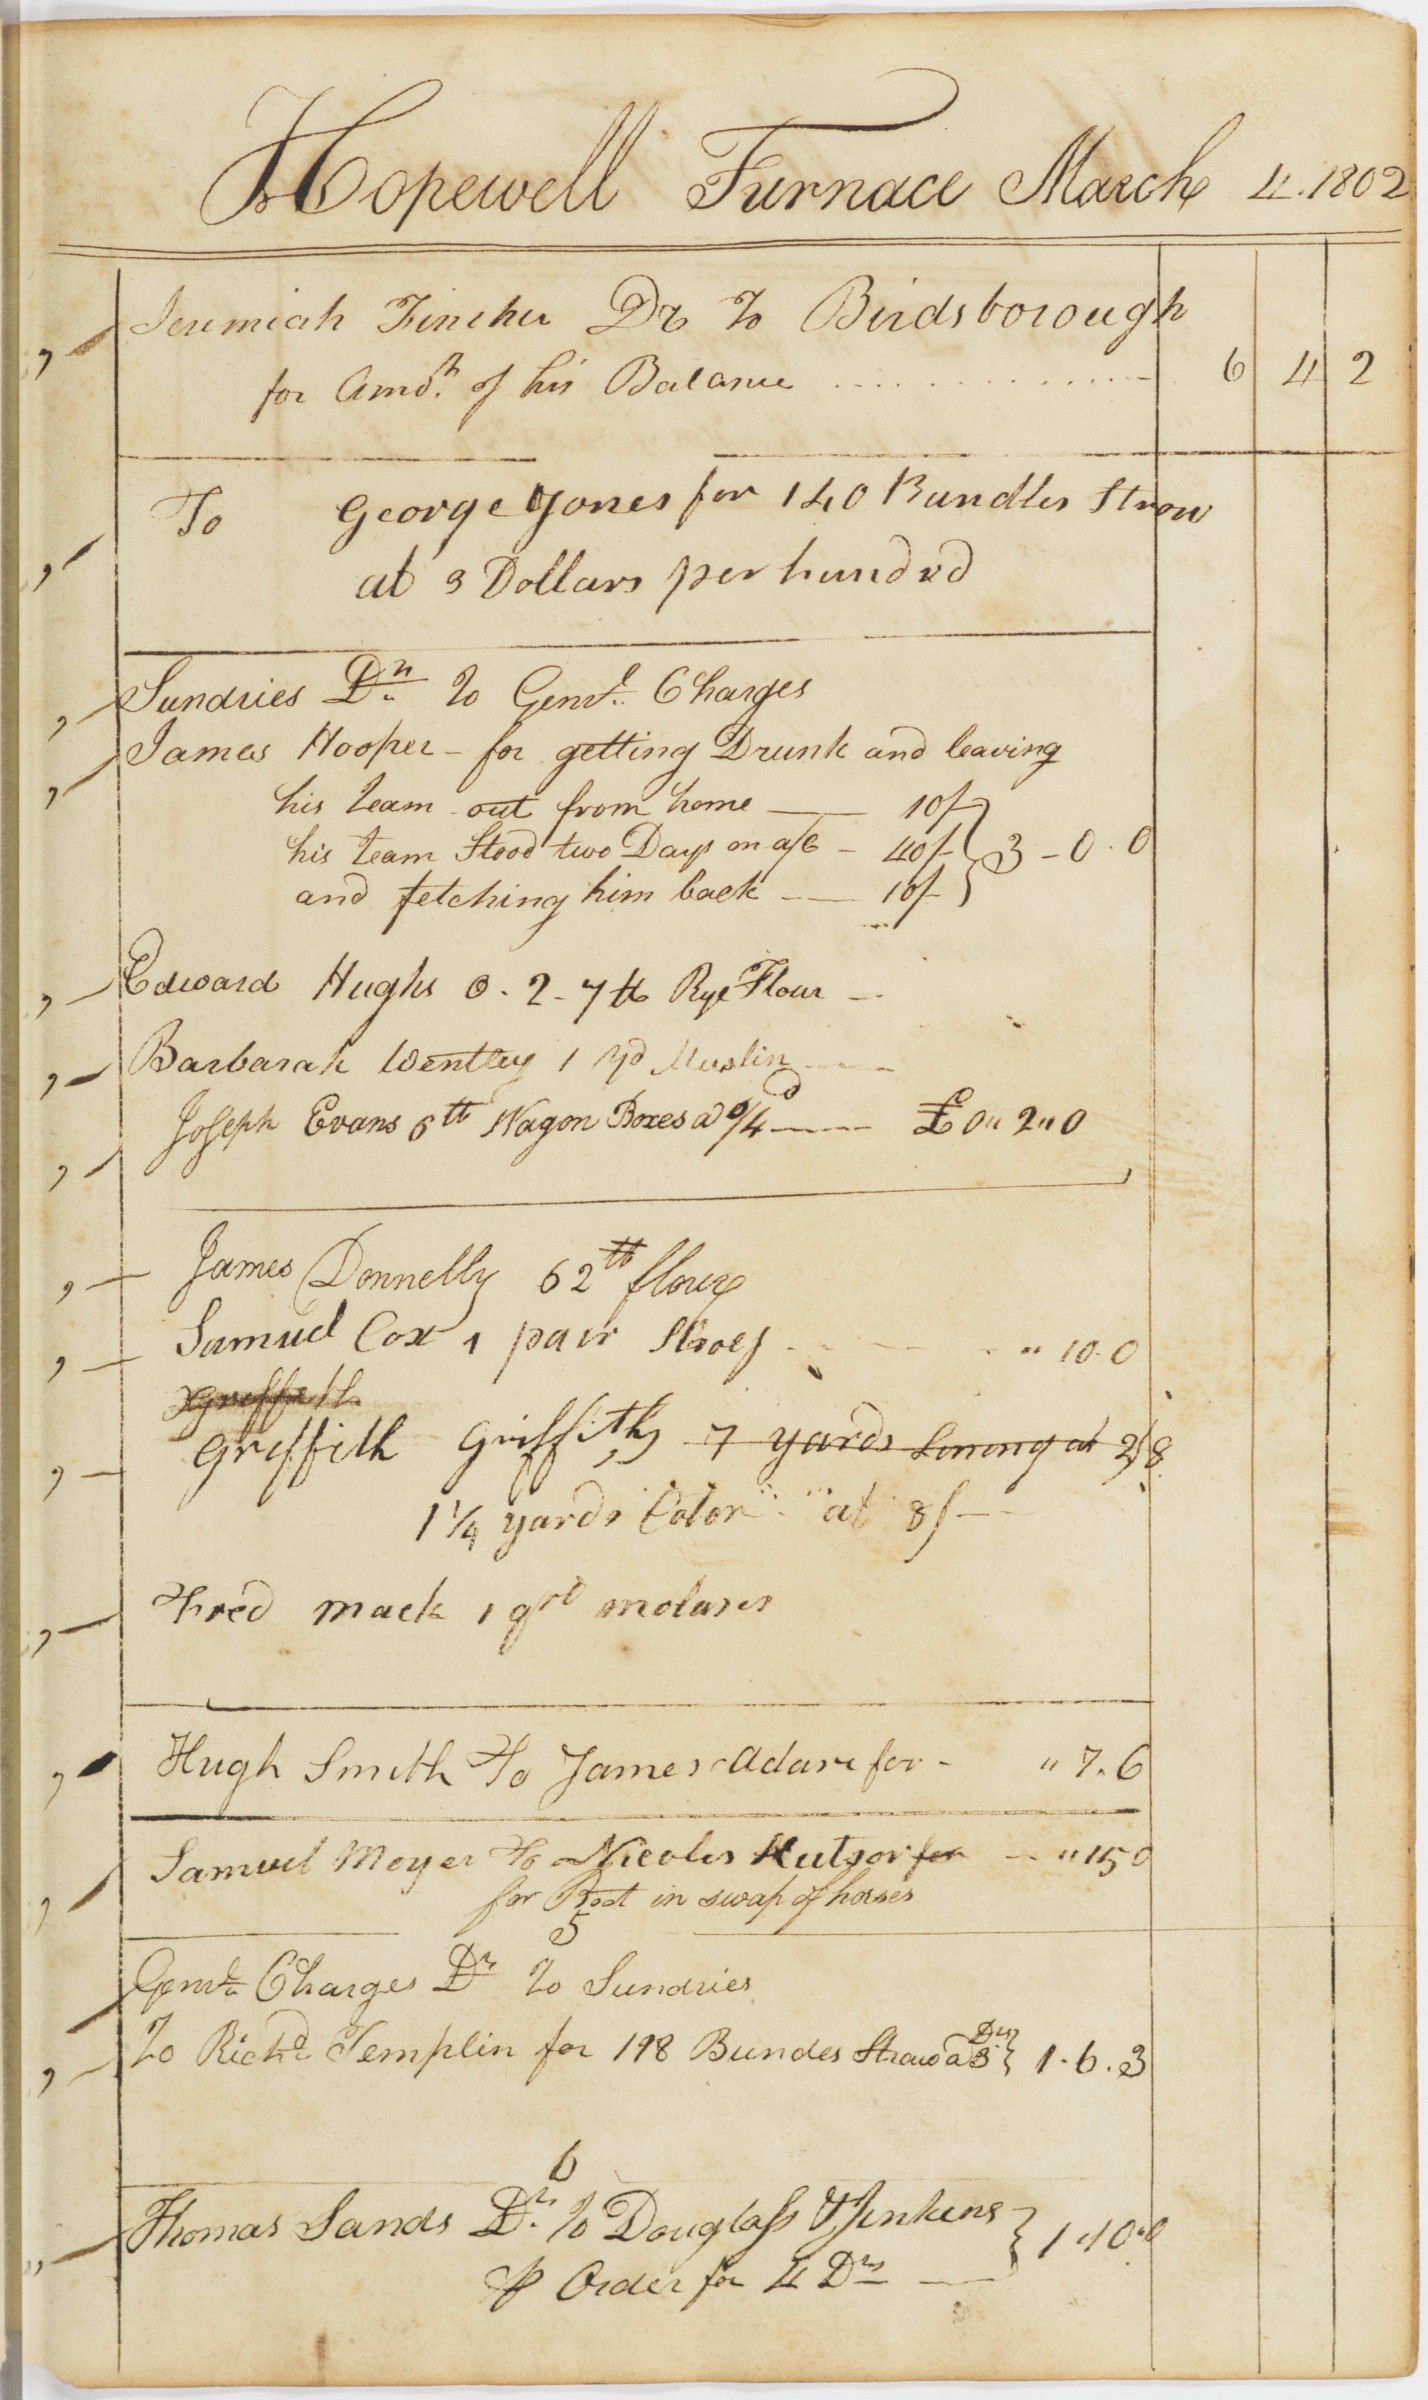 Hopewell Furnace March 4. 1802
Jeremiah Fincher Dr To Birdsborough
for Amot. of his Balance 6 4 2
To George Jones for 140 Bundles Straw
at 3 Dollars per hundrd
Sundries Dr. To Genrl. Charges
James Hooper - for getting Drunk and leaving
his team out from home — 10/-
his team Stood two Days on a/c - 40/- } 3 - 0 . 0
and fetching him back — 10/-
Edward Hughs 0 . 2 - 7 lb Rye Flour -
Barbarah Wentley 1 yd Muslin —
Joseph Evans 6 lb Wagon Boxes a 0/4d — £ 0 " 2 " 0
James Donnelly 62 lb flour
Samuel Cox 1 pair Shoes " 10 . 0
Griffith
Griffith Griffith, 7 yards Linning at 2/8
1 1/4 yards Coton " " at 8/ —
Fred mack 1 qrt molases
Hugh Smith To James Adare for - " 7 . 6
Samuel Moyer To Nicolis Hutsor for - " 15 0
for Boot in swap of horses
5
Genrl. Charges Dr To Sundries
To Richd. Templin for 118 Bundes Straw a 3 Drs } 1 . 6 . 3
6
Thomas Sands Dr. To Douglass & Jenkens } 1 " 10 " 0
P Order for 4 Drs —